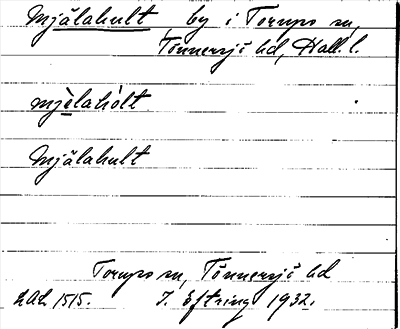 Mjälahult by i Torups sn,
Tönnersjö hd, Hall. l.
mjèlahólt
Mjälahult
Torups sn, Tönnersjö hd
LAL 1515. J. Eftring 1932.